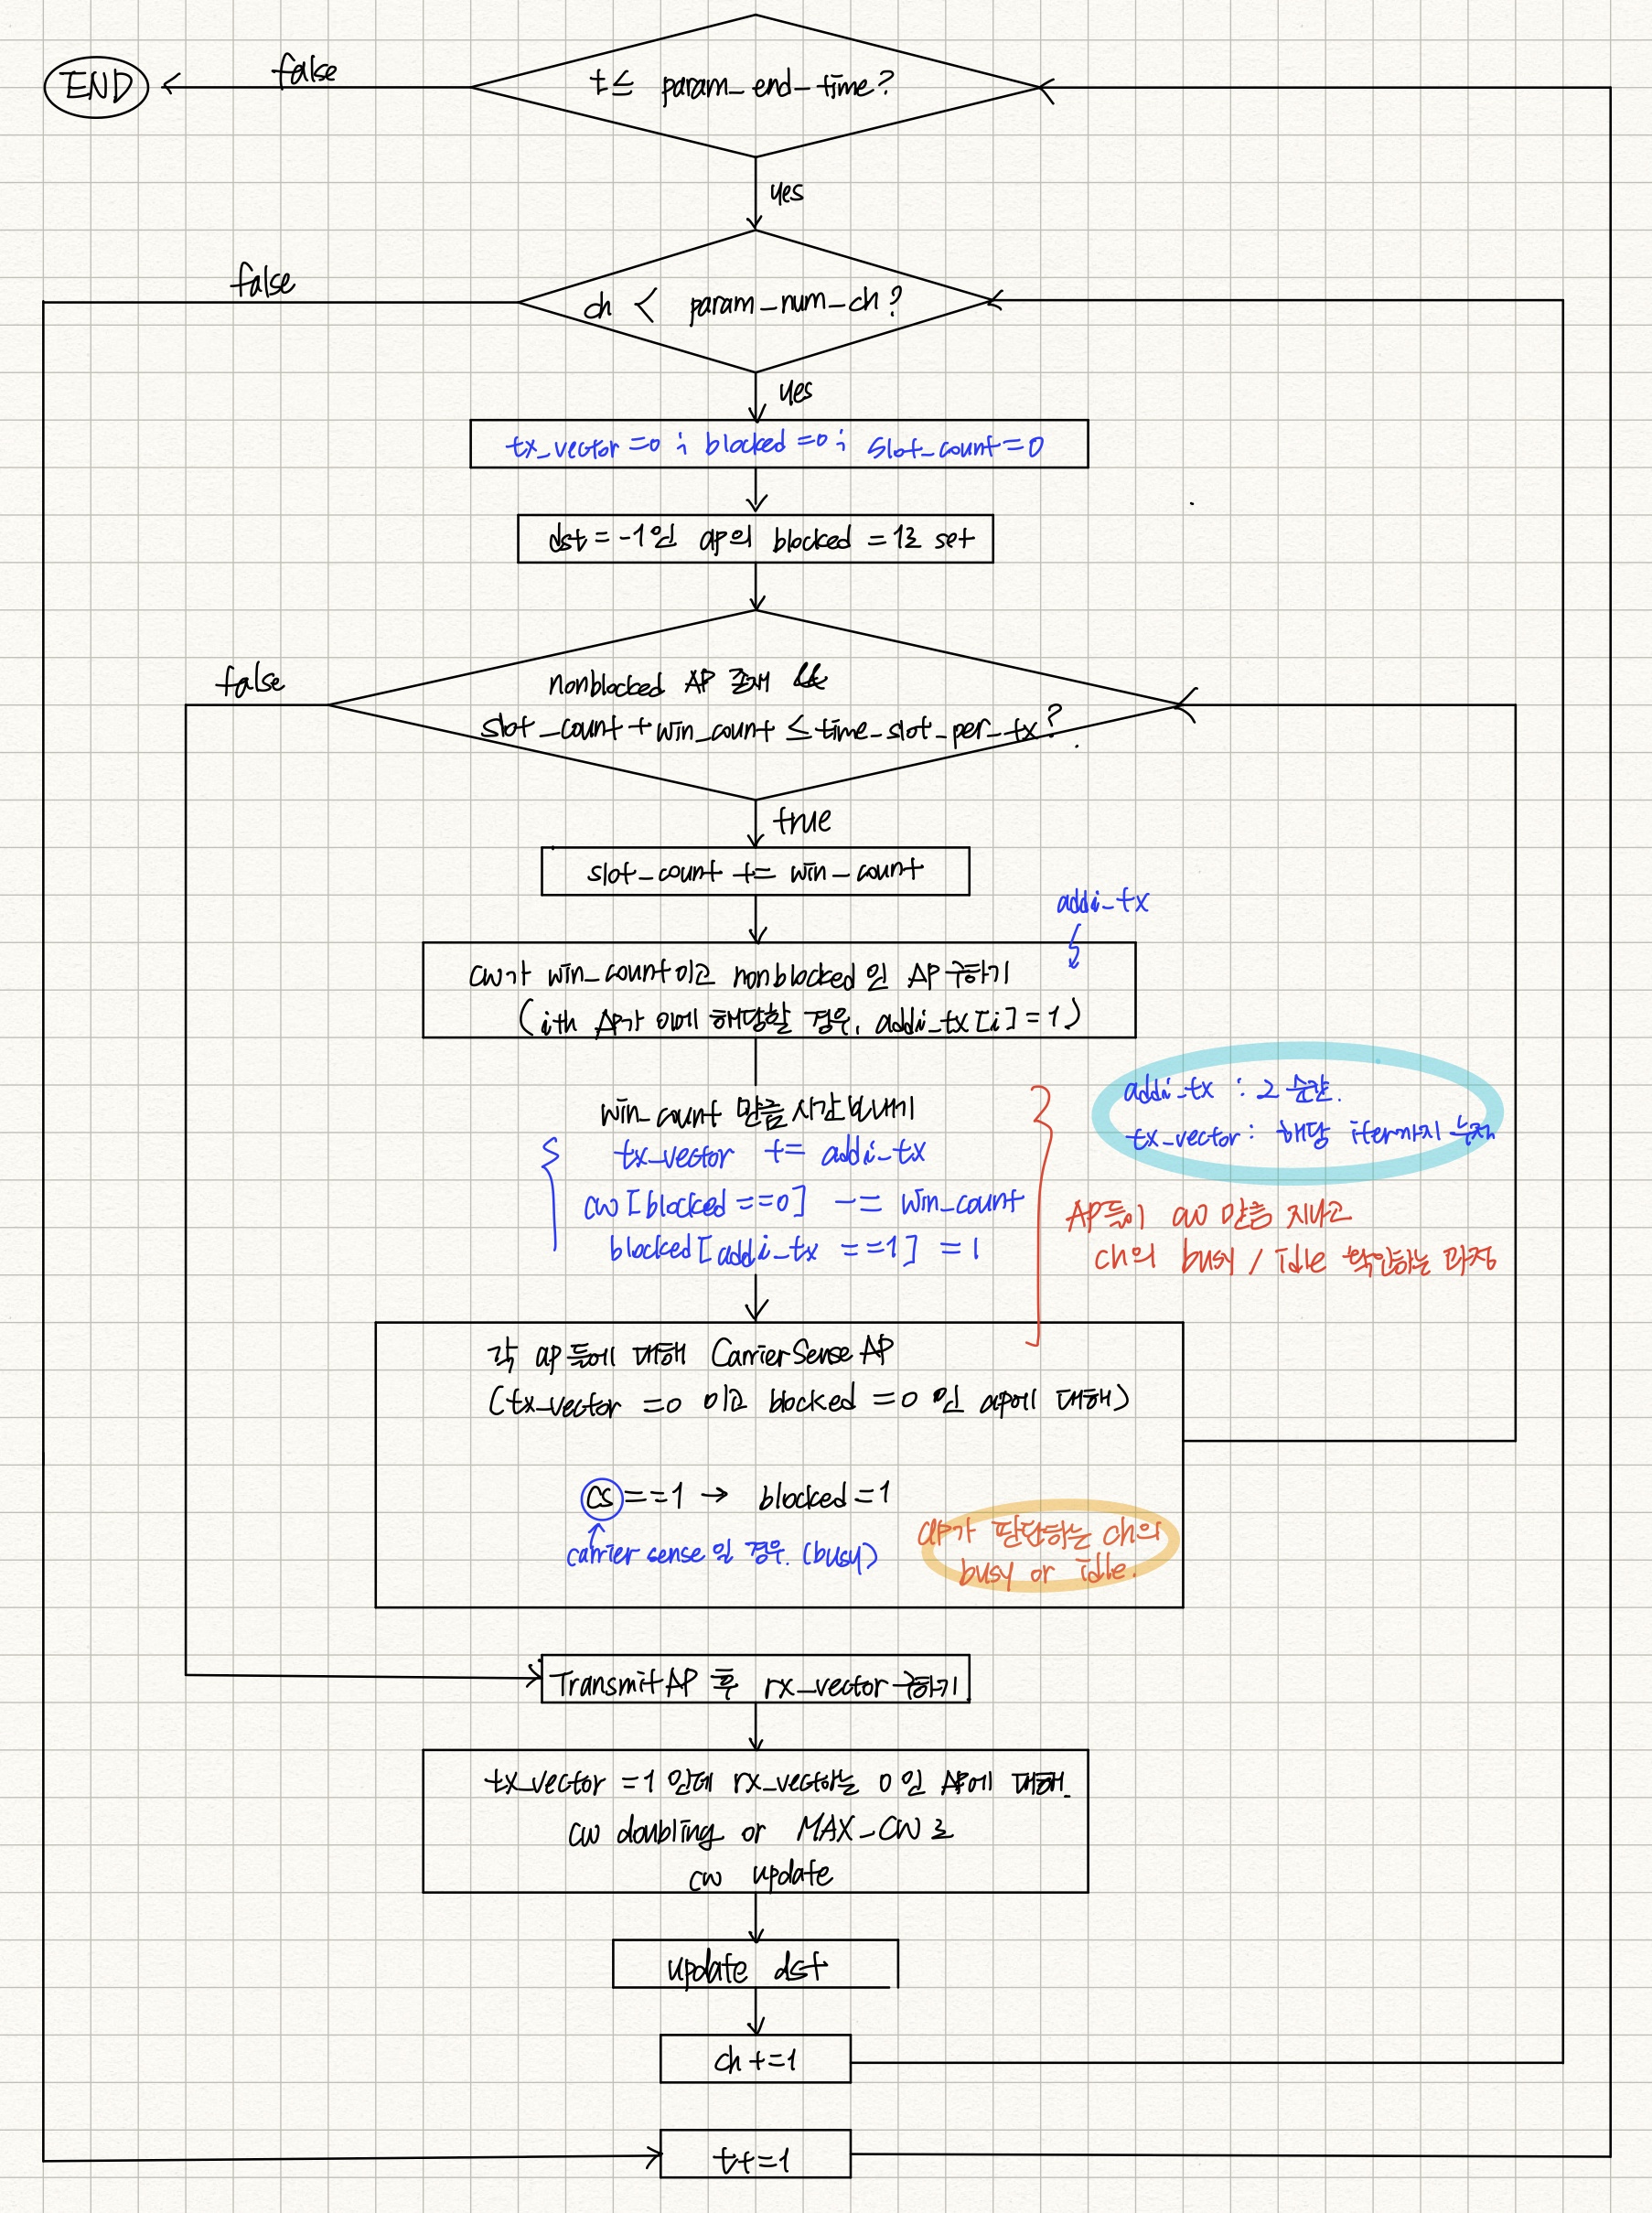 END
false
t ≤ param_end_time?
yes
false
ch < param_num_ch?
yes
tx_vector=0 ; blocked=0 ; slot_count=0
dst = -1인 ap의 blocked = 1로 set
false
nonblocked AP 존재 &&
slot_count + win_count ≤ time_slot_per_tx?
true
slot_count += win_count
addi_tx
cw가 win_count이고 nonblocked인 AP 구하기
(ith AP가 이에 해당할 경우, addi_tx[i] = 1)
win_count 만큼 시간 보내기
tx_vector += addi_tx
cw[blocked==0] -= win_count
blocked[addi_tx ==1] = 1
addi_tx : 그 순간.
tx_vector : 해당 iter까지 누적
AP들이 cw 만큼 지나고
ch의 busy / idle 확인하는 과정
각 ap들에 대해 CarrierSense AP
(tx_vector =0 이고 blocked =0 인 ap에 대해)
cs ==1 → blocked=1
carrier sense 일 경우. (busy)
ap가 판단하는 ch의
busy or idle.
TransmitAP 후 rx_vector 구하기
tx_vector =1 인데 rx_vector는 0인 AP에 대해
cw doubling or MAX_CW로
cw update
update dst
ch +=1
t+=1